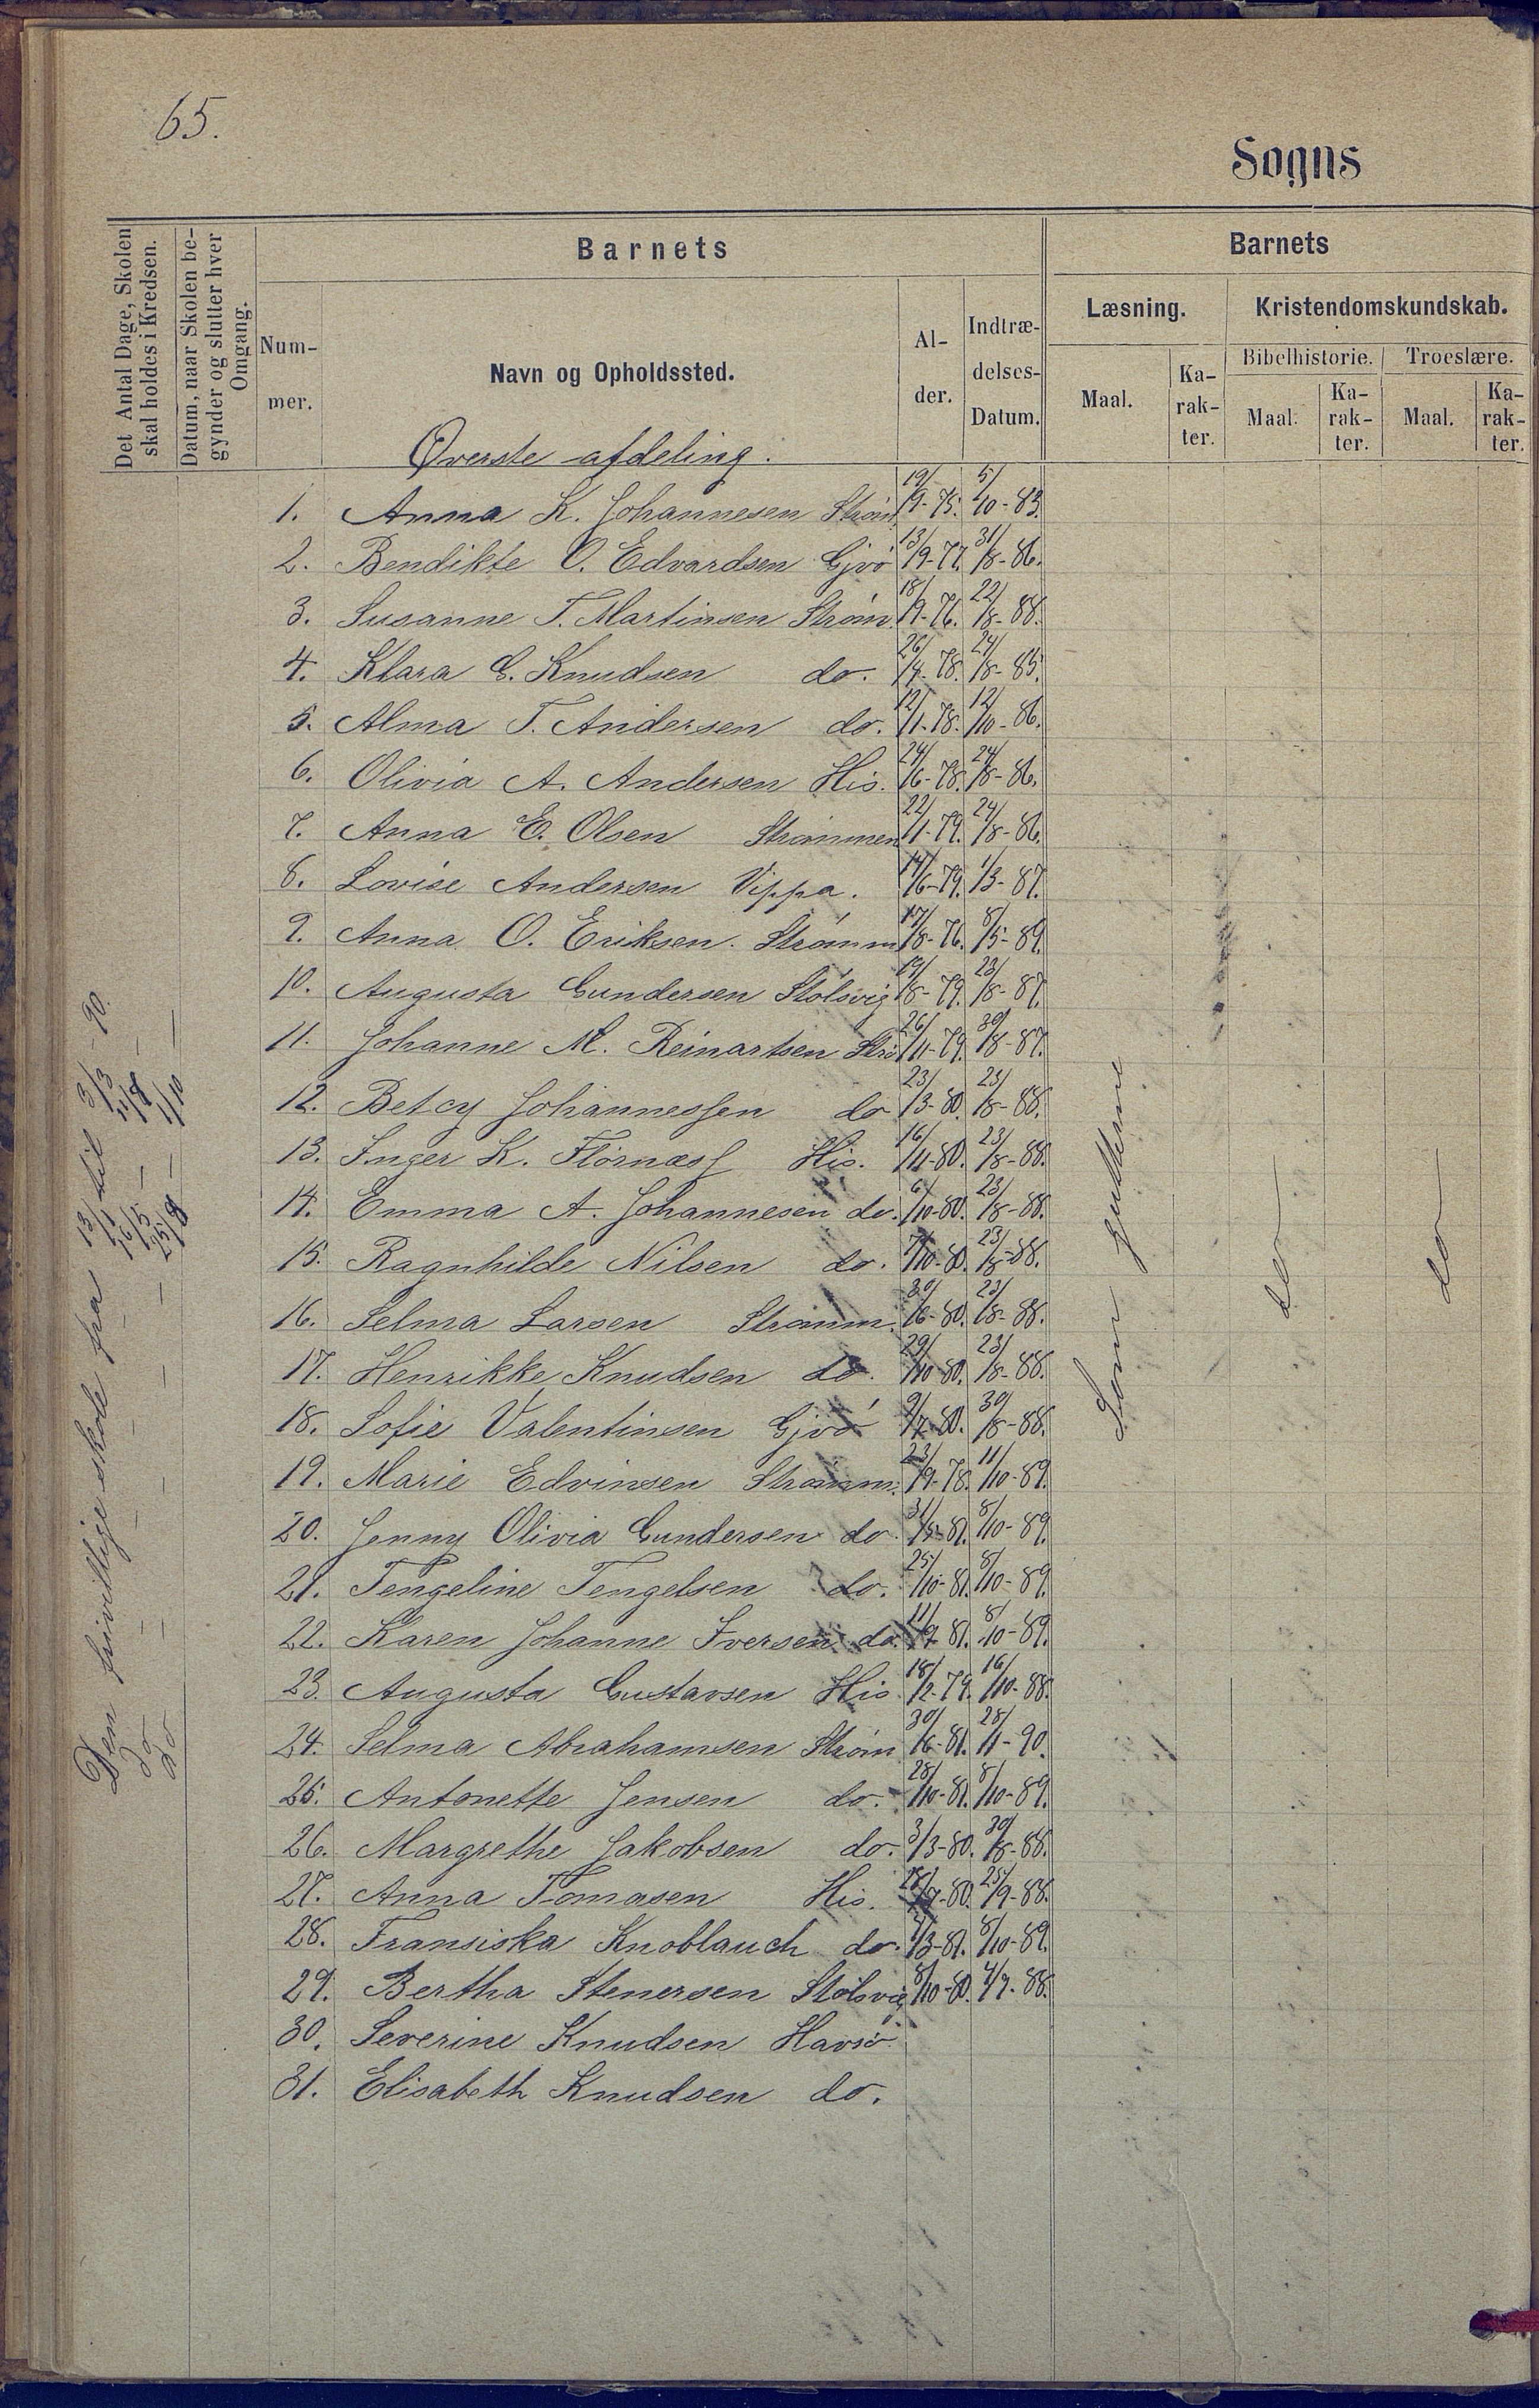 65.
Sogns
Det Antal Dage, Skolen
skal holdes i Kredsen.
Datum, naar Skolen be-
gynder og slutter hver
Omgang.
Barnets
Num-
mer.
Navn og Opholdssted.
Al-
der.
Indtræ-
delses-
Datum.
Barnets
Læsning.
Maal.
Ka-
rak-
ter.
Kristendomskundskab.
Bibelhistorie.
Maal.
Ka-
rak-
ter.
Troeslære.
Maal.
Ka-
rak-
ter.
Øverste afdeling.
1. Anna K. Johannesen Strøm. 19/9-75. 5/10-83.
2. Bendikte O. Edvardsen Gjvø 13/9-77. 31/8-86.
3. Susanne T. Martinsen Strøm. 18/9-76. 22/8-88.
4. Klara C. Knudsen do. 26/4-78. 24/8-85.
5. Alma T. Andersen do. 12/11-78. 12/10-86.
6. Olivia A. Andersen His. 24/6-78. 24/8-86.
7. Anna E. Olsen Strømmen 22/1-79. 24/8-86.
8. Lovise Andersen Vippa. 14/6-79. 1/3-87.
9. Anna O. Eriksen. Strømm 17/8-76. 8/5-89.
10. Augusta Gundersen Stølsvig 19/8-79. 23/8-87.
11. Johanne M. Reinartsen Strø 26/11-79. 30/8-87.
12. Betcy Johannessen do 23/3-80. 23/8-88.
13. Inger K. Flørnæss His. 16/11-80. 23/8-88.
14. Emma A. Johannesen do. 6/10-80. 23/8-88.
15. Ragnhilde Nilsen do. 7/10-80. 23/8-88.
16. Selma Larsen Strømm. 30/6-80. 23/8-88.
17. Henrikke Knudsen do. 29/10-80. 23/8-88.
18. Sofie Valentinsen Gjvø 9/7-80. 30/8-88.
19. Marie Edvinsen Strømm. 23/9-78. 11/10-89.
20. Jenny Olivia Gundersen do. 31/5-81. 8/10-89.
21. Tengeline Tengelsen do. 25/10-81. 8/10-89.
22. Karen Johanne Iversen do. 11/9-81. 8/10-89.
23. Augusta Gustavsen His. 18/2-79. 16/10-88.
24. Selma Abrahamsen Strøm 30/6-81. 28/1-90.
25. Antonette Jensen do. 28/10-81. 8/10-89.
26. Margrethe Jakobsen do. 3/3-80. 30/8-88.
27. Anna Tomasen His. /7-80. 25/9-88.
28. Fransiska Knoblauch do. /3-81. 8/10-89.
29. Bertha Stenersen Stølsvig 8/10-80. 4/9-88.
30. Severine Knudsen Havsø
31. Elisabeth Knudsen do.
Den frivillige skole fra 13/1 til 3/3 - 90.
do - - - 16/5 - 11/8 -
do - - - 25/8 - 1/10 -
Som gutterne
do
do